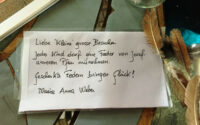 Liebe kleine grosse Besucher
Jedes Kind darf eine Feder von
unseren Pfau mitnehmen
Geschenkte Federn bringen Glück!
Maria Anna Weber